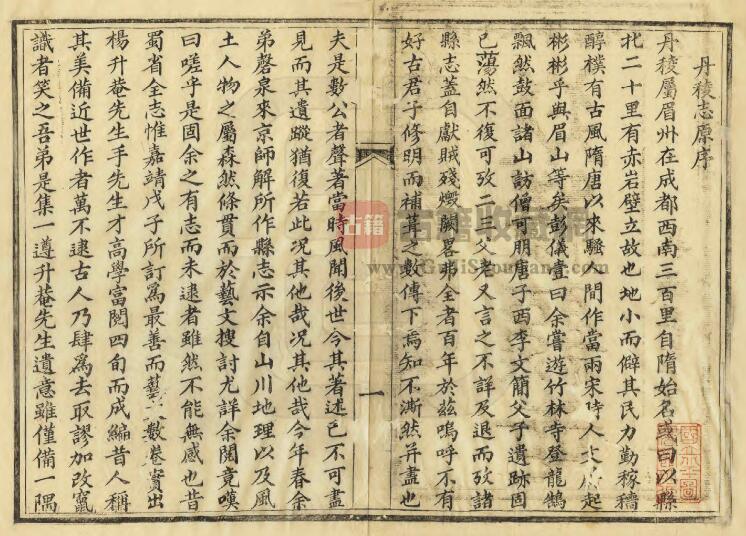 丹稜志原序
丹稜屬眉州在成都西南三百里自隋始名或曰以縣
北二十里有赤岩壁立故也地小而僻其民力勤稼穡
醇樸有古風隋唐以來騷人間作當兩宋時人文蔚起
彬彬乎與眉山等矣彭儀壹曰余嘗遊竹林寺登龍鵠
飄然鼓面諸山訪僧可朋唐子西李文簡父子遺跡固
已蕩然不復可攷二三父老又言之不詳及退而攷諸
縣志蓋自獻賊殘燬闕畧弗全者百年於茲嗚呼不有
好古君子修明而補葺之數傳下焉知不澌然并盡也
一
夫是數公者聲著當時風聞後世今其著述已不可盡
見而其遺蹤猶復若此况其他哉况其他哉今年春余
弟磬泉來京師解所作縣志示余自山川地理以及風
土人物之屬森然條貫而於藝文搜討尤詳余閱竟嘆
曰嗟乎是固余之有志而未逮者雖然不能無感也昔
蜀省全志惟嘉靖戊子所訂爲最善而藝文數卷實出
楊升菴先生手先生才高學富閱四旬而成編昔人稱
其美備近世作者萬不逮古人乃肆爲去取謬加改竄
識者笑之吾弟是集一遵升菴先生遺意雖僅備一隅
古籍
www.GujiShouCang.com